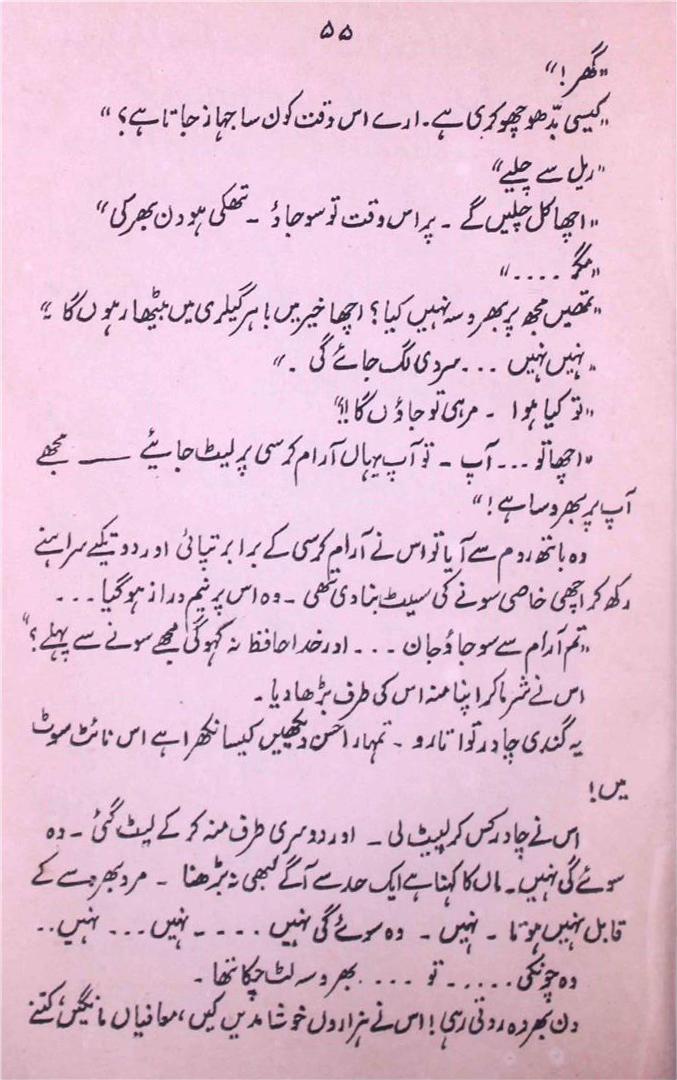 ۵۵
"گھر!"
"کیسی بدّھو چھوکری ہے۔ ارے اس وقت کون سا جہاز جاتا ہے؟"
"ریل سے چلیے"
"اچھا کل چلیں گے ۔ پر اس وقت تو سو جاؤ ۔ تھکی ہو دن بھر کی"
"مگر ...."
"تمھیں مجھ پر بھروسہ نہیں کیا؟ اچھا خیر میں باہر گیلری میں بیٹھا رہوں گا۔"
"نہیں نہیں ... سردی لگ جائے گی ."
"تو کیا ہوا ۔ مر ہی تو جاؤں گا!!"
"اچھا تو ... آپ ۔ تو آپ یہاں آرام کرسی پر لیٹ جائیے ——— مجھے
آپ پر بھروسا ہے!"
وہ باتھ روم سے آیا تو اس نے آرام کرسی کے برابر تپائی اور دو تیکے سراہنے
رکھ کر اچھی خاصی سونے کی سیٹ بنا دی تھی ۔ وہ اس پر نیم دراز ہو گیا ...
"تم آرام سے سو جاؤ جان ... اور خدا حافظ نہ کہو گی مجھے سونے سے پہلے؟"
اس نے شرما کر اپنا منہ اس کی طرف بڑھا دیا ۔
یہ گندی چادر تو اتارو ۔ تمہارا حسن دیکھیں کیسا نکھرا ہے اس نائٹ سوٹ
میں!
اس نے چادر کس کر لپیٹ لی ۔ اور دوسری طرف منہ کر کے لیٹ گئی ۔ وہ
سوئے گی نہیں ۔ ماں کا کہنا ہے ایک حد سے آگے کبھی نہ بڑھنا ۔ مرد بھروسے کے
قابل نہیں ہوتا ۔ نہیں ۔ وہ سوئے گی نہیں .... ۔ نہیں ... نہیں ..
وہ چونکی ..... ۔ تو .... بھروسہ لٹ چکا تھا ۔
دن بھر وہ روتی رہی! اس نے ہزاروں خوشامدیں کیں، معافیاں مانگیں، کتنے